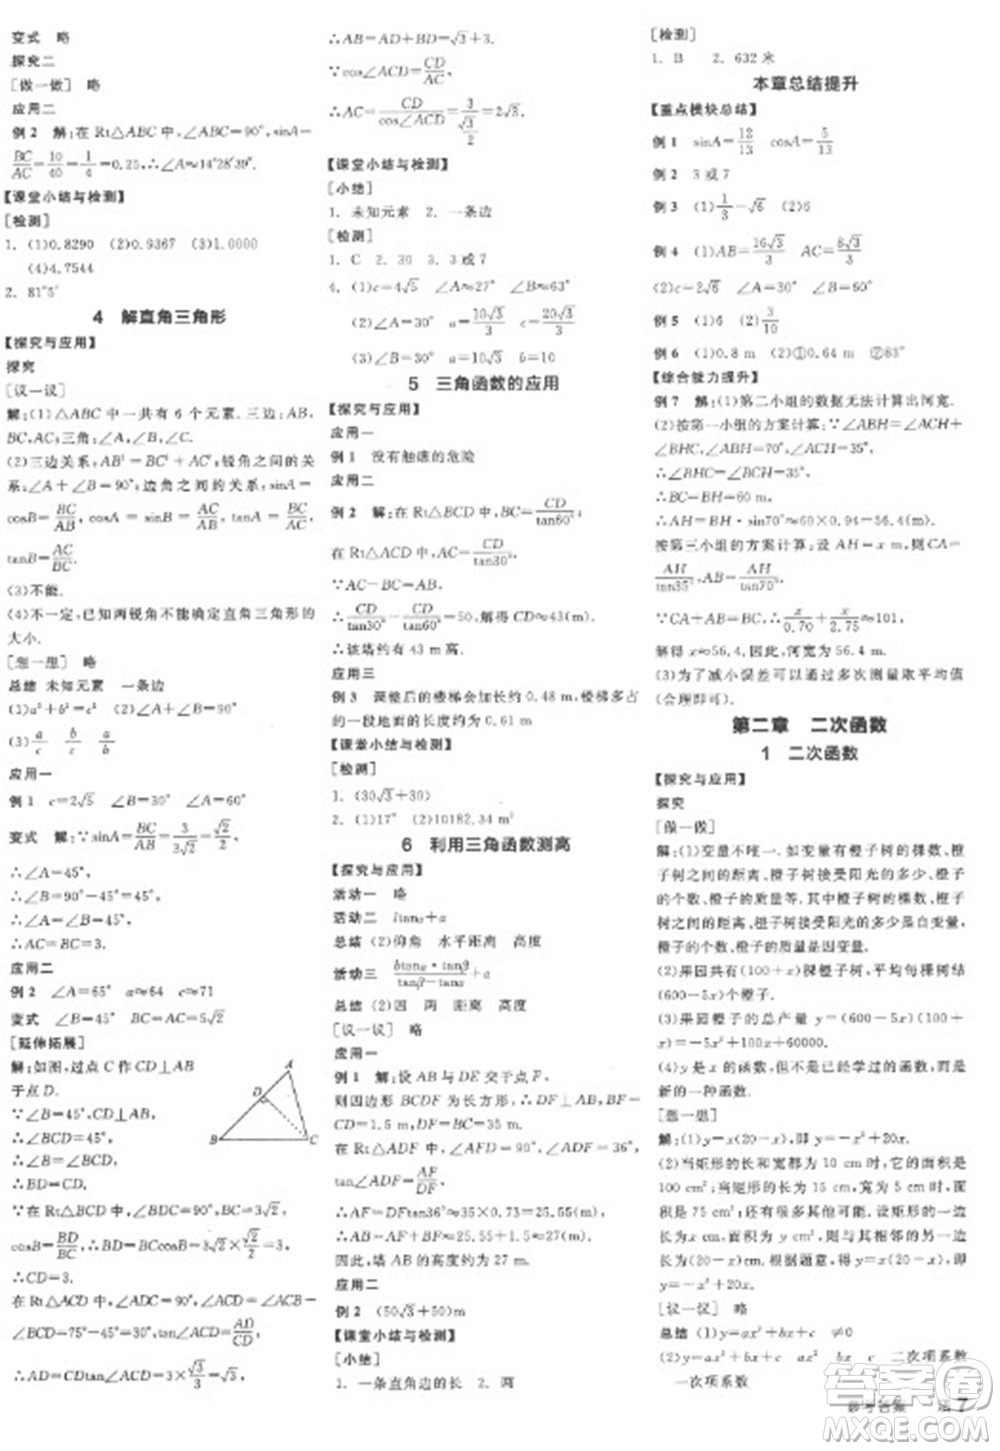 变式　略
探究二
[做一做]　略
应用二
例2　解:在 Rt△ABC 中,∠ABC=90°,sinA=
BC/AC=10/40=1/4=0.25,∴∠A≈14°28′39″.
【课堂小结与检测】
[检测]
1. (1)0.8290　(2)0.9367　(3)1.0000
(4)4.7544
2. 81°5′
4　解直角三角形
【探究与应用】
探究
[议一议]
解:(1)△ABC 中一共有 6 个元素.三边:AB,
BC,AC;三角:∠A,∠B,∠C.
(2)三边关系,AB²=BC²+AC²;锐角之间的关
系,∠A+∠B=90°;边角之间的关系,sinA=
cosB=BC/AB, cosA=sinB=AC/AB, tanA=BC/AC,
tanB=AC/BC.
(3)不能.
(4)不一定,已知两锐角不能确定直角三角形的
大小.
[想一想]　略
总结　未知元素　一条边
(1)a²+b²=c²　(2)∠A+∠B=90°
(3)a/c　b/c　a/b
应用一
例1　c=2√5　∠B=30°　∠A=60°
变式　解:∵sinA=BC/AB=3/3√2=√2/2,
∴∠A=45°,
∴∠B=90°-∠A=45°,
∴AC=BC=3.
应用二
例2　∠A=65°　a≈64　c≈71
变式　∠B=45°　AC=5√2
[延伸拓展]
解:如图,过点 C 作 CD⊥AB
于点 D.
∵∠B=45°,CD⊥AB,
∴∠BCD=45°,
∴∠B=∠BCD,
∴BD=CD.
∵在 Rt△BCD 中,BC=3√2,
cosB=BD/BC,∴BD=BCcosB=3√2×√2/2=3,
∴CD=3.
在 Rt△ACD 中,∠ADC=90°,∠ACD=∠ACB-
∠BCD=75°-45°=30°,tan∠ACD=AD/CD,
∴AD=CDtan∠ACD=3×√3/3=√3,
A
D
B
C
∴AB=AD+BD=√3+3.
∵cos∠ACD=CD/AC,
∴AC=CD/cos∠ACD=3/(√3/2)=2√3.
【课堂小结与检测】
[小结]
1. 未知元素　2. 一条边
[检测]
1. C　2. 30　3. 3 或 7
4. (1)c=4√5　∠A=27°　∠B=63°
(2)∠A=30°　a=10√3/3　c=20√3/3
(3)∠B=30°　a=10√3　b=10
5　三角函数的应用
【探究与应用】
应用一
例1　没有触礁的危险
应用二
例2　解:在 Rt△BCD 中,BC=CD/tan60°,
在 Rt△ACD 中,AC=CD/tan30°,
∵AC-BC=AB,
∴CD/tan30°-CD/tan60°=50,解得 CD≈43,
∴该塔约有 43 m 高.
应用三
例3　调整后的楼梯会加长约 0.48 m,楼梯多占
的一段地面的长度约为 0.61 m
【课堂小结与检测】
[检测]
1. (30√3+30)
2. (1)17°　(2)10182.34 m³
6　利用三角函数测高
【探究与应用】
活动一　略
活动二　ltanα+a
总结　(2)仰角　水平距离　高度
活动三　btanα·tanβ/(tanβ-tanα)+a
总结　(2)因　两　距离　高度
[议一议]　略
应用一
例1　解:设 AB 与 DE 交于点 F,
则四边形 BCDF 为长方形,DF⊥AB,BF=
CD=1.5 m,DF=BC=35 m.
在 Rt△ADF 中,∠AFD=90°,∠ADF=36°,
tan∠ADF=AF/DF,
∴AF=DFtan36°≈35×0.73=25.55(m),
∴AB=AF+BF≈25.55+1.5≈27(m).
因此,塔 AB 的高度约为 27 m.
应用二
例2　(50√3+50)m
【课堂小结与检测】
[小结]
1. 一条直角边的长　2. 两
[检测]
1. B　2. 632 米
本章总结提升
【重点模块总结】
例1　sinA=12/13　cosA=5/13
例2　3 或 7
例3　(1)1/3-√6　(2)6
例4　(1)AB=16√3/3　AC=8√3/3
(2)c=2√6　∠A=30°　∠B=60°
例5　(1)6　(2)3/10
例6　(1)0.8 m　(2)①0.64 m　②83°
【综合能力提升】
例7　解:(1)第二小组的数据无法计算出河宽.
(2)按第一小组的方案计算:∵∠ABH=∠ACH+
∠BHC,∠ABH=70°,∠ACH=35°,
∴∠BHC=∠BCH=35°,
∴BC=BH=60 m,
∴AH=BH·sin70°≈60×0.94=56.4(m).
按第三小组的方案计算:设 AH=x m,则 CA=
AH/tan35°,AB=AH/tan70°.
∵CA+AB=CB,∴x/0.70+x/2.75≈101,
解得 x≈56.4,因此,河宽为 56.4 m.
(3)为了减小误差可以通过多次测量取平均值
(合理即可).
第二章　二次函数
1　二次函数
【探究与应用】
探究
[做一做]
解:(1)变量不唯一.如变量有橙子树的棵数、橙
子树之间的距离、橙子树接受阳光的多少、橙子
的个数、橙子的质量等,其中橙子树的棵数、橙子
树之间的距离、橙子树接受阳光的多少是自变量,
橙子的个数、橙子的质量是因变量.
(2)果园共有(100+x)棵橙子树,平均每棵树结
(600-5x)个橙子.
(3)果园橙子的总产量 y=(100+x)(600-
5x)=-5x²+100x+60000.
(4)y 是 x 的函数,但不是已学过的函数,而是
新的一种函数.
[想一想]
解:(1)y=x(20-x)=-x²+20x.
(2)当矩形的长和宽都为 10 cm 时,面积为
100 cm²;当矩形的长为 15 cm,宽为 5 cm 时,
面积为 75 cm².还有很多情况,如设矩形一边
长为 x cm,则另一边长为(20-x)cm,面积
y=x(20-x),即 y=-x²+20x.两变量的关系是
y=-x²+20x.
[议一议]　略
总结　(1)y=ax²+bx+c　≠0
(2)y=ax²+bx+c　a　b　c　二次项系数
一次项系数
答案圈
参考答案
7